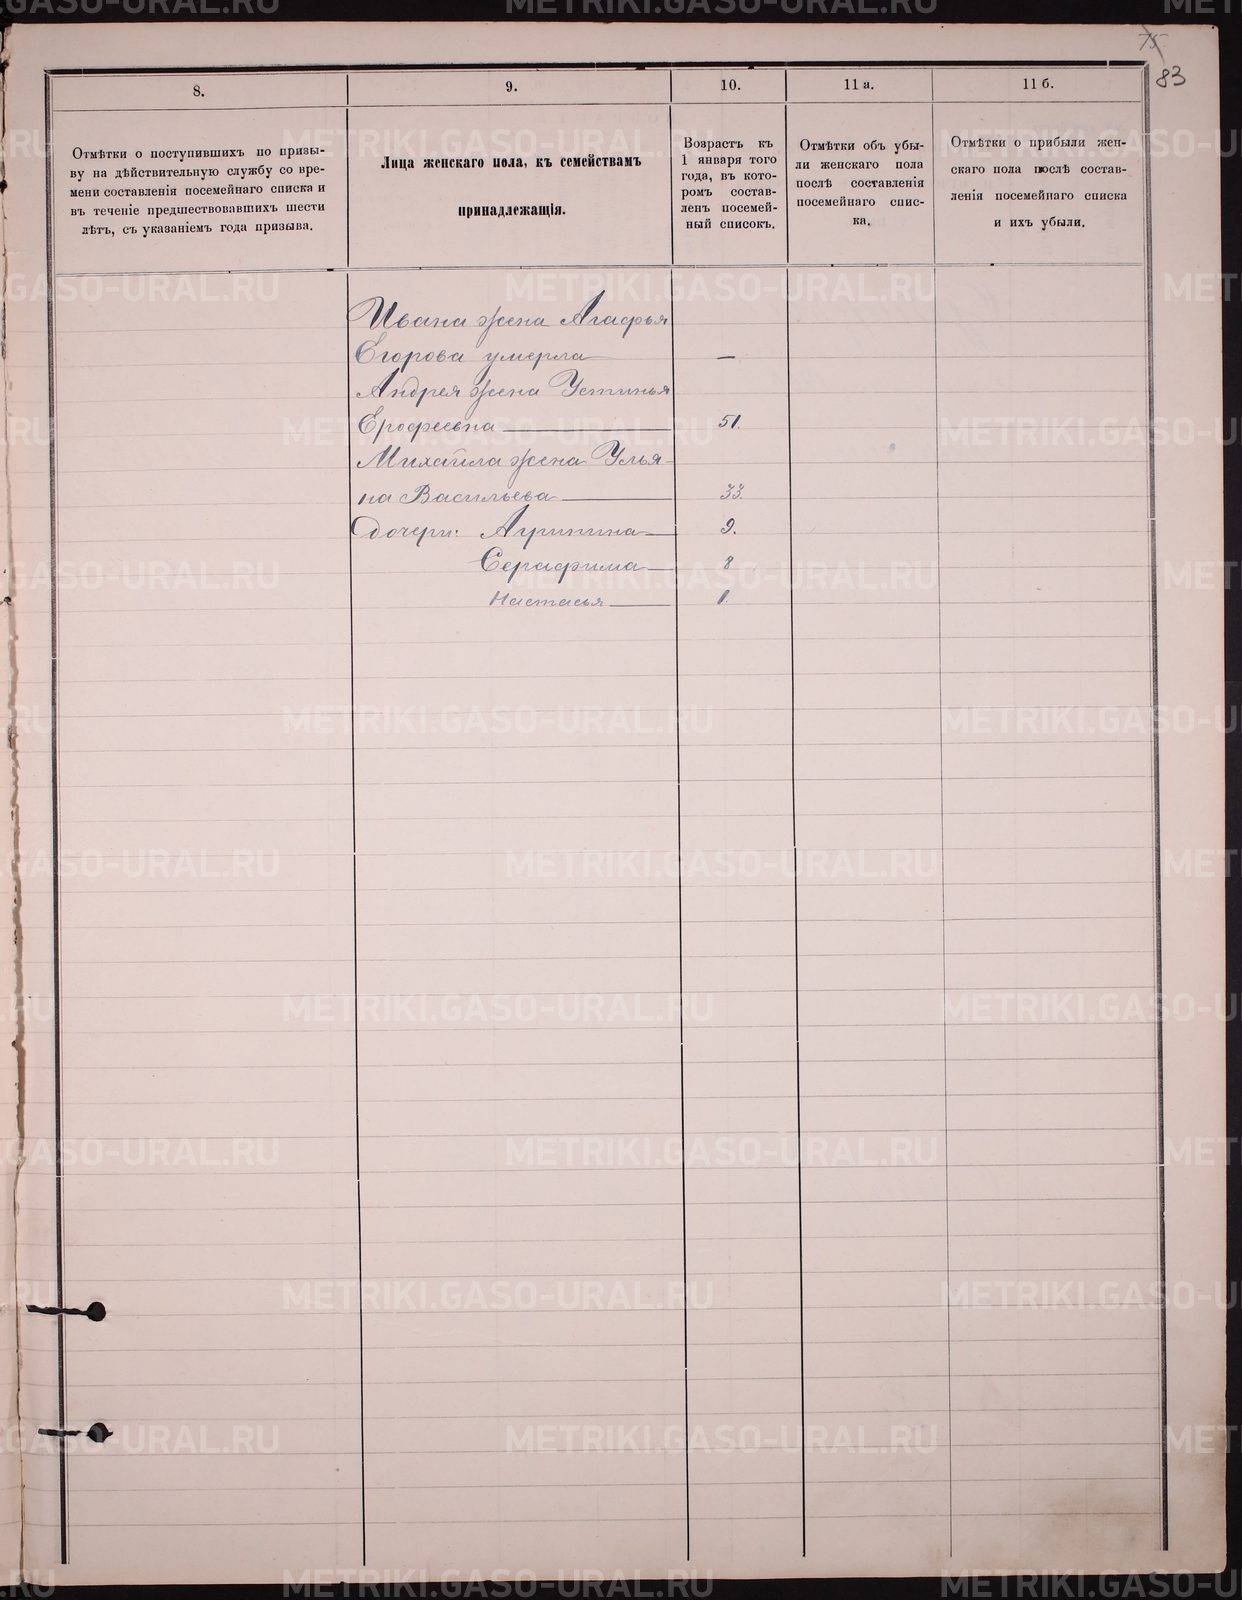 75
83
8.
9.
10.
11 а.
11 б.
Отмѣтки о поступившихъ по призы-
ву на дѣйствительную службу со вре-
мени составленія посемейнаго списка и
въ теченіе предшествовавшихъ шести
лѣтъ, съ указаніемъ года призыва.
Лица женскаго пола, къ семействамъ
принадлежащія.
Возрастъ къ
1 января того
года, въ кото-
ромъ состав-
ленъ посемей-
ный списокъ.
Отмѣтки объ убы-
ли женскаго пола
послѣ составленія
посемейнаго спис-
ка.
Отмѣтки о прибыли жен-
скаго пола послѣ состав-
ленія посемейнаго списка
и ихъ убыли.
Ивана жена Агафья
Егорова умерла —
Андрея жена Устинья
Ерофеевна 51.
Михаила жена Улья-
на Васильева 33.
Дочери: Агрипина 9.
Серафима 8
Настасья 1.
METRIKI.GASO-URAL.RU